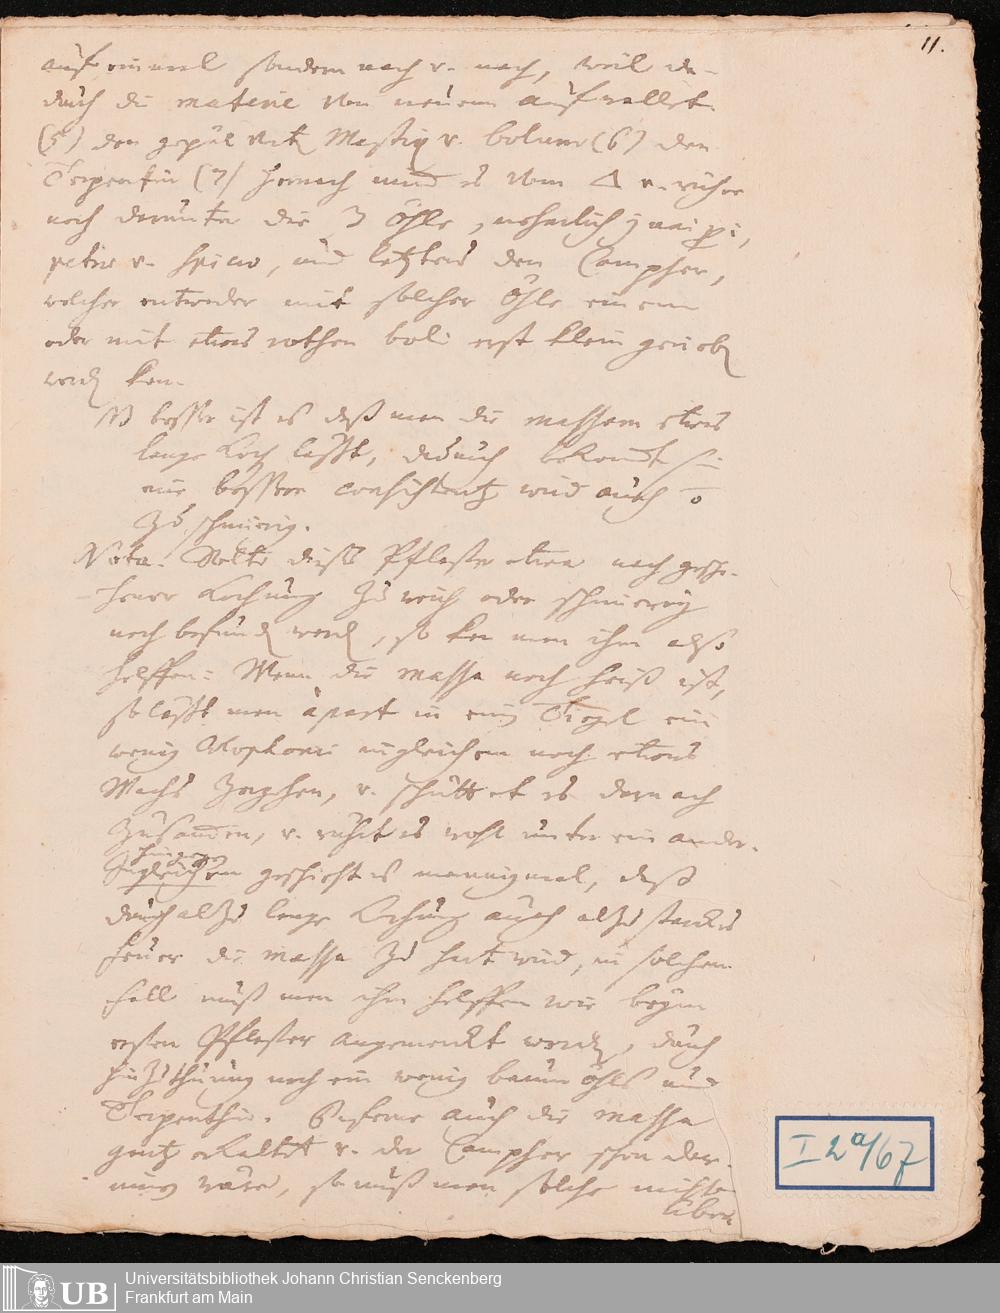 11.
auf einmal sondern nach u. nach, weil da-
durch die materie von neuem aufwallet.
(5) den Mastix u. bolum (6) den
Terpentin (7) hernach wird es vom △ u. rühre
noch darunter die 3 Öhle, nehmlich
petrae u. spicae, und letztens den Campher,
welcher entweder mit solcher Öhle einem
oder mit etwas rothen boli erst klein gerieben
werden kan.
NB besser ist es daß man die massam etwas
lange koch lässt, dadurch bekommt sie
eine bessere consistentz wird auch
zu schmierig.
Nota. Solte dieses Pflaster etwa nach gesche-
hener Kochung zu weich oder schmierig
noch befunden werden, so kan man ihm also
helffen: Wenn die massa noch heiß ist,
so lässt man apart in einem Tiegel ein
wenig Colophoni imgleichen noch etwas
Wachs zergehen, u. schüttet es darnach
zusammen, u. rührt es wohl unter ein ander.
hingegen
Imgleichen geschieht es mannigmal, daß
durch alzu lange Kochung auch alzu starckes
feuer die massa zu hart wird, in solchem
fall muß man ihm helffen wie beym
ersten Pflaster angemerckt worden, durch
hinzuthuung noch ein wenig baum öhls und
Terpenthin. Soferne auch die massa
gantz erkaltet u. der Campher schon dar-
innen wäre, so muß man solche
über
I 2 a/67
Universitätsbibliothek Johann Christian Senckenberg
Frankfurt am Main
UB